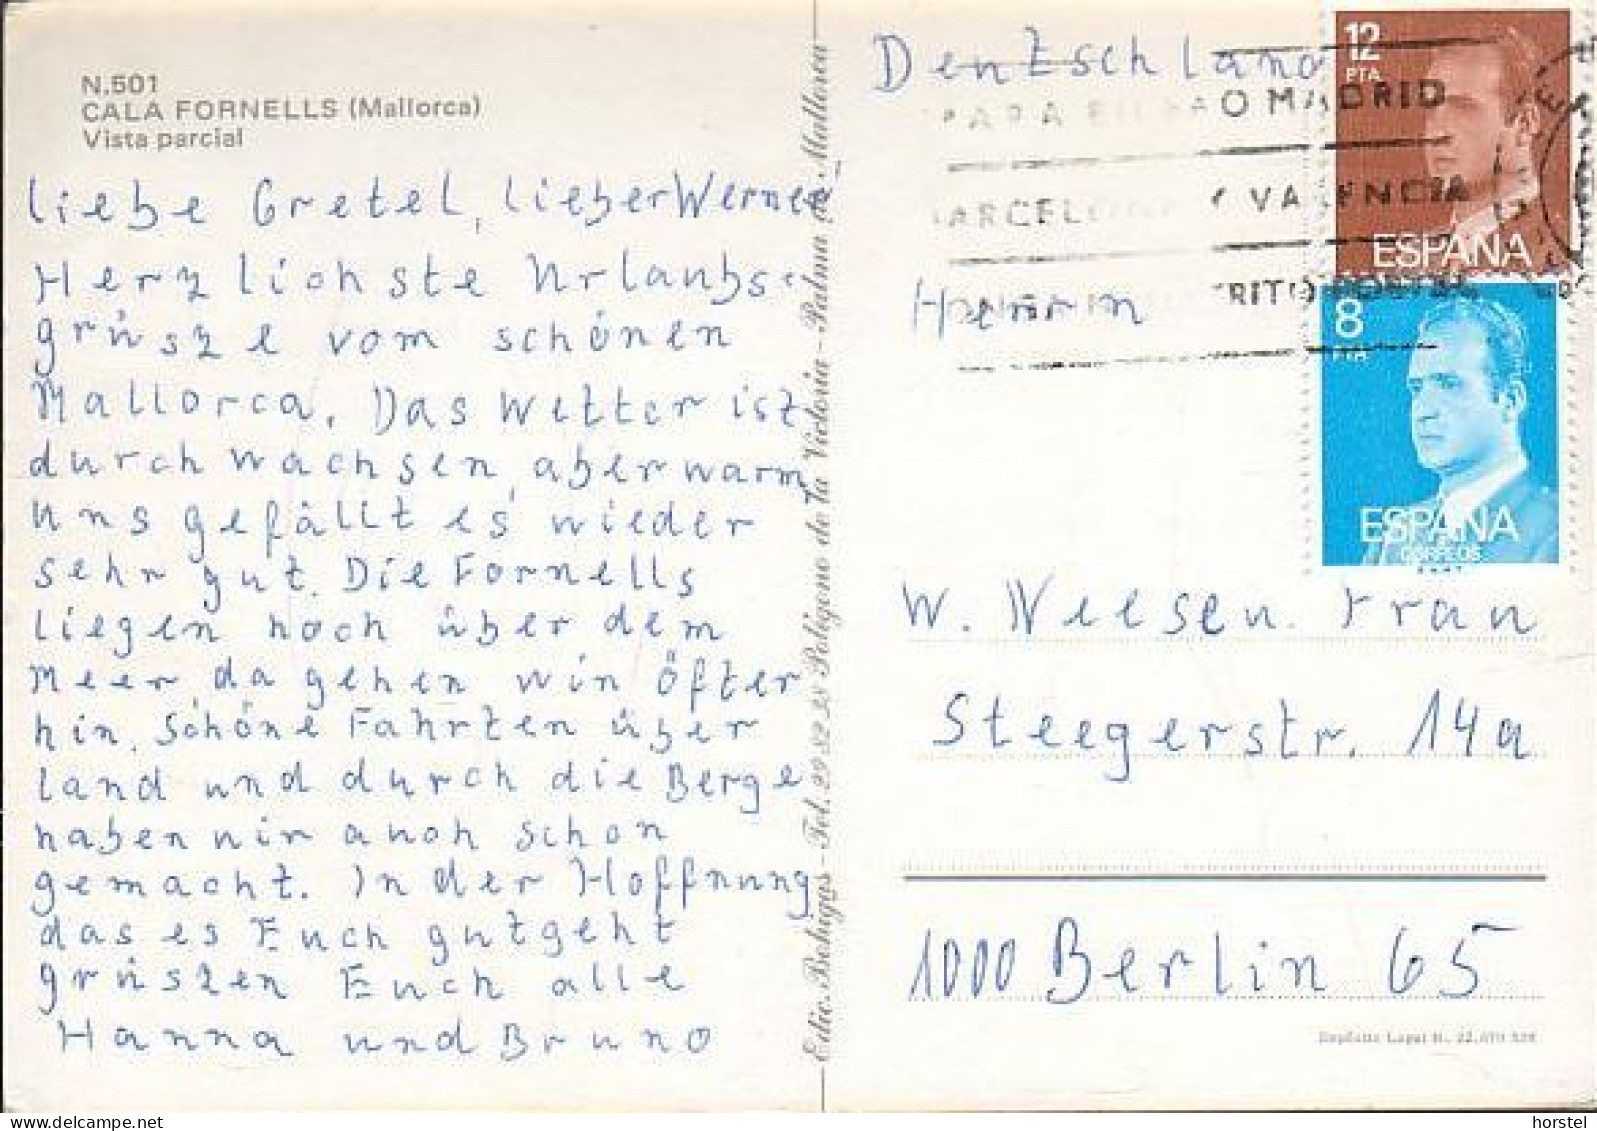 N.501
CALA FORNELLS (Mallorca)
Vista parcial
Liebe Gretel, Lieber Werner
Herzlichste Urlaubs-
grüsze vom schönen
Mallorca. Das Wetter ist
durchwachsen, aber warm
Uns gefällt es wieder
sehr gut. Die Fornells
liegen hoch über dem
Meer, da gehen wir öfter
hin. Schöne Fahrten über
land und durch die Berge
haben wir auch schon
gemacht. In der Hoffnung
das es Euch gutgeht
grüszen Euch alle
Hanna und Bruno
Edic. Bohigas - Tel. 29 82 28 Polígono de la Victoria - Palma de Mallorca
Deutschland
12
PTA
ESPAÑA
8
PTA
ESPAÑA
CORREOS
PARA BILBAO MADRID
BARCELONA Y VALENCIA
DISTRITO POSTAL
Herrn
W. Niesen. Frau
Steegerstr. 14a
1000 Berlin 65
horstel